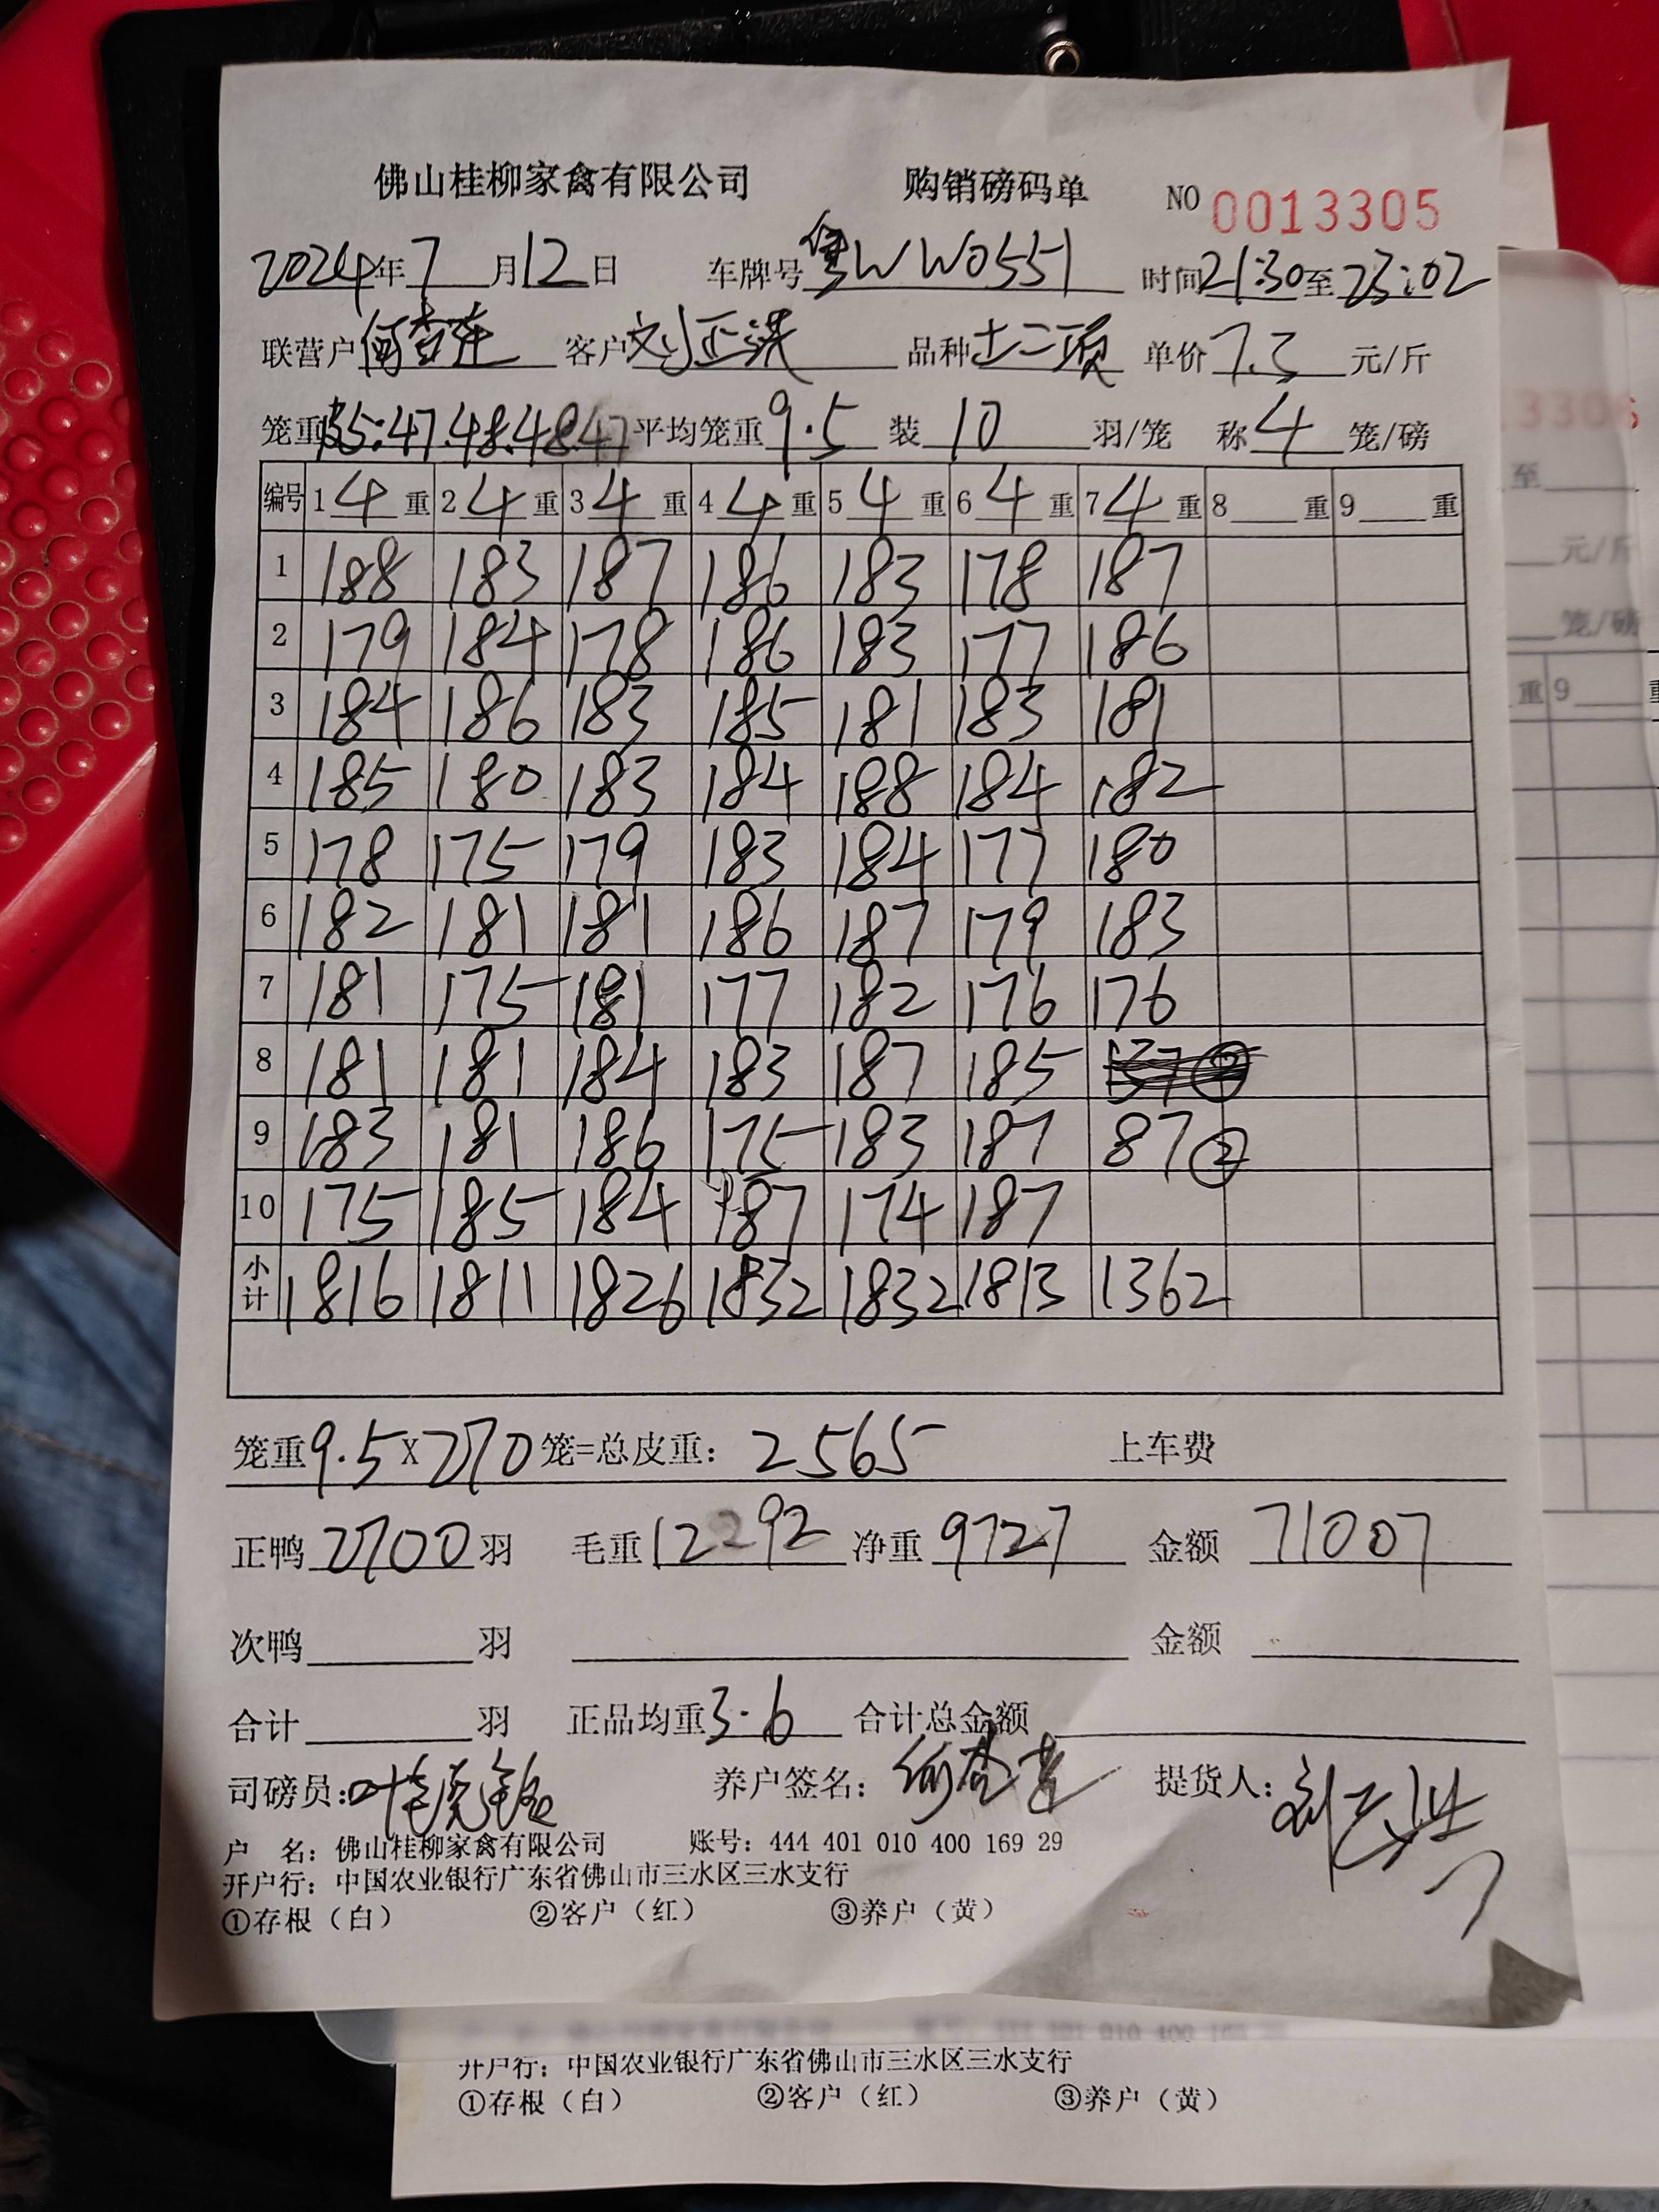 佛山桂柳家禽有限公司 购销磅码单 NO 0013305
2024年7月12日 车牌号粤WW0551 时间21:30至23:02
联营户何杏莲 客户刘正洪 品种土二项 单价7.3元/斤
笼重 35:47.48.48.47 平均笼重9.5 装10羽/笼 称4笼/磅
编号 1 4 重 2 4 重 3 4 重 4 4 重 5 4 重 6 4 重 7 4 重 8 重 9 重
1 188 183 187 186 183 178 187
2 179 184 178 186 183 177 186
3 184 186 183 185 181 183 181
4 185 180 183 184 188 184 182
5 178 175 179 183 184 177 180
6 182 181 181 186 187 179 183
7 181 175 181 177 182 176 176
8 181 181 184 183 187 185
9 183 181 186 175 183 187 87②
10 175 185 184 187 174 187
小计 1816 1811 1826 1832 1832 1813 1362
笼重9.5X270笼=总皮重：2565 上车费
正鸭2700羽 毛重12292 净重9727 金额71007
次鸭 羽 金额
合计 羽 正品均重3.6 合计总金额
司磅员: 养户签名：何杏莲 提货人：刘正洪
户 名：佛山桂柳家禽有限公司 账号：444 401 010 400 169 29
开户行：中国农业银行广东省佛山市三水区三水支行
①存根（白） ②客户（红） ③养户（黄）
开户行：中国农业银行广东省佛山市三水区三水支行
①存根（白） ②客户（红） ③养户（黄）
3306
至
元/斤
笼/磅
重 9 重